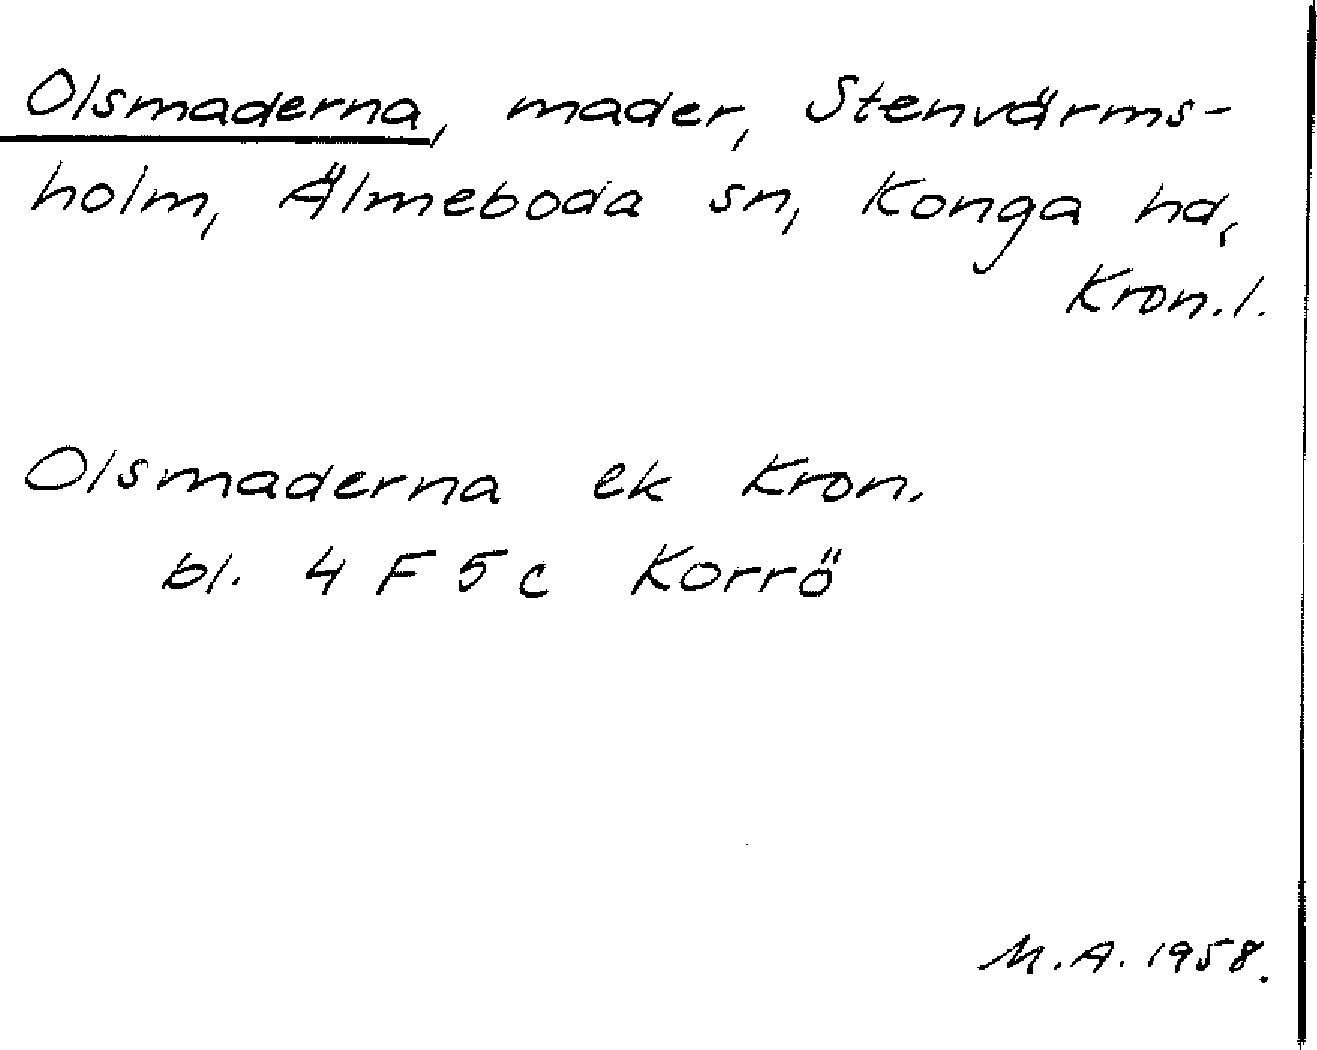 Olsmaderna, mader, Stenvärms-
holm, Älmeboda sn, Konga hd,
Kron.l.
Olsmaderna ek Kron.
bl. 4 F 5 c Korrö
M.A. 1958.